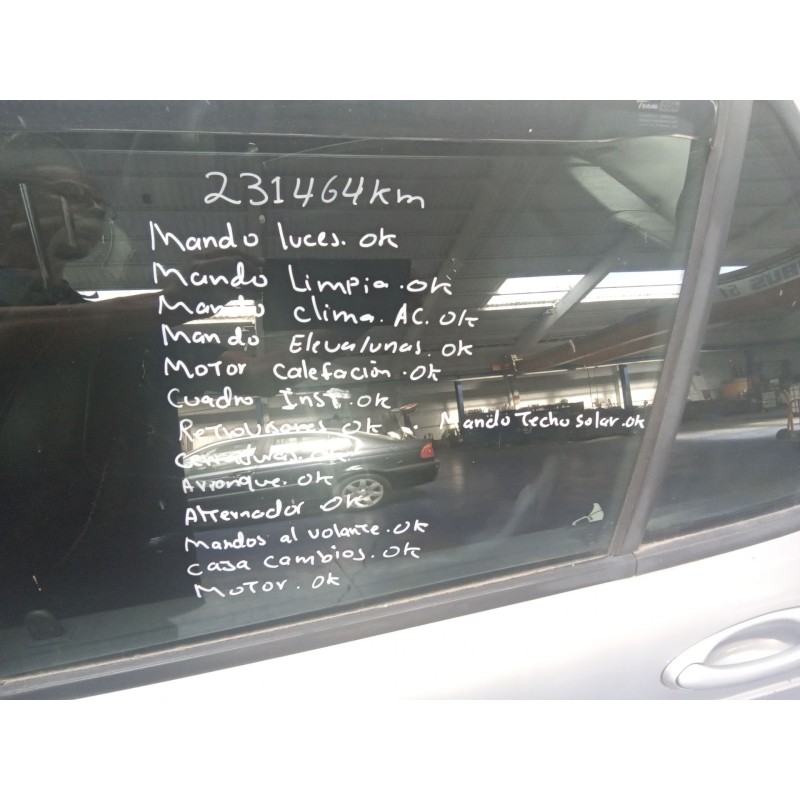 231464km
Mando luces. ok
Mando Limpia. ok
Mando clima. AC. ok
Mando Elevalunas. ok
Motor Calefación. ok
Cuadro Inst. ok
Retrovisores ok . Mando Techo solar. ok
Cerraduras. ok.
Arranque. ok
Alternador ok
Mandos al volante. ok
Caja Cambios. ok
Motor. ok